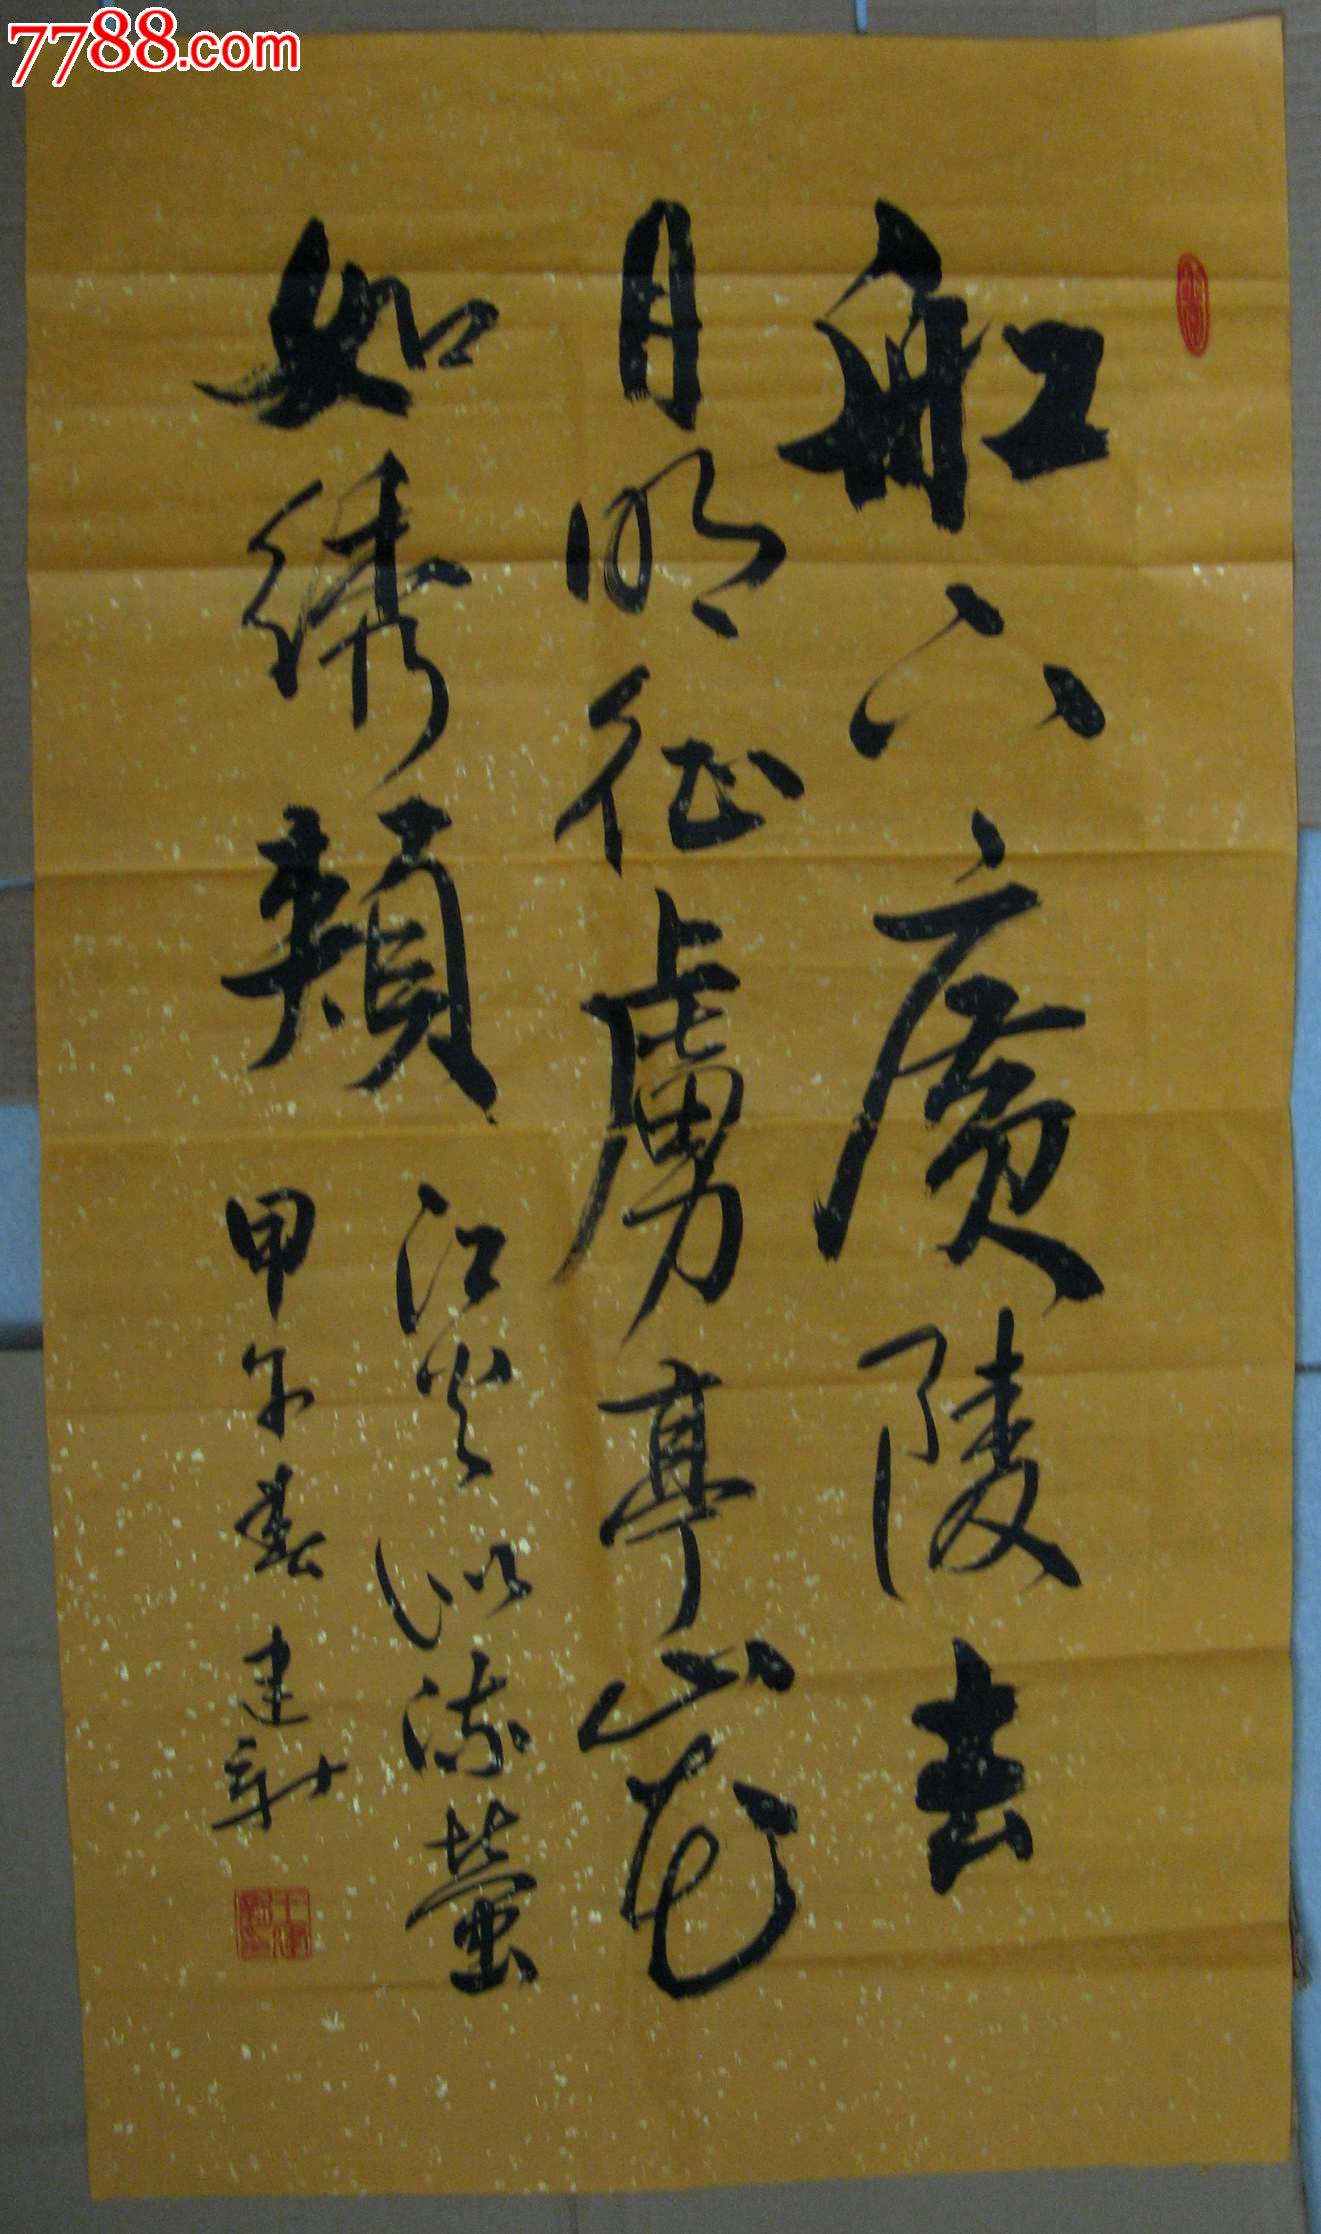 7788.com
舡下廣陵去
月明征虜亭山花
如绣頰
江火似流萤
甲午春建